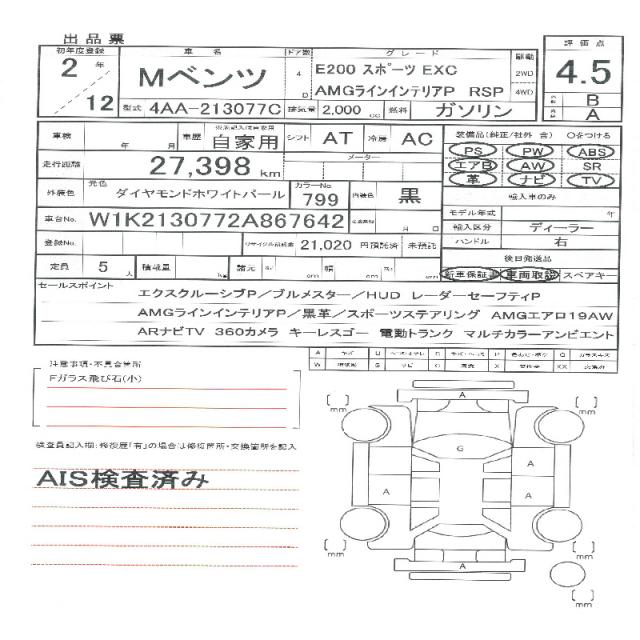 出品票
初年度登録 車名 ドア数 グレード 駆動 評価点
2年 Mベンツ 4 E200 スポーツ EXC 2WD 4.5
D AMGラインインテリアP RSP 4WD
12 型式 4AA-213077C 排気量 2,000 cc 燃料 ガソリン B
A
車検 年 月 車歴 自家用 シフト AT 冷房 AC 装備品(純正/社外 含) Oをつける
PS PW ABS
走行距離 27,398 km メーター エアB AW SR
革 ナビ TV
外装色 元色 ダイヤモンドホワイトパール カラーNo. 799 内装色 黒 輸入車のみ
モデル年式 年
車台No. W1K2130772A867642 月 日 輸入区分 ディーラー
登録No. リサイクル預託金 21,020 円預託済 未預託 ハンドル 右
後日発送品
定員 5人 積載量 kg 諸元 長 cm 幅 cm 高 cm 新車保証書 車両取説 スペアキー
セールスポイント
エクスクルーシブP/ブルメスター/HUD レーダーセーフティP
AMGラインインテリアP/黒革/スポーツステアリング AMGエアロ19AW
ARナビTV 360カメラ キーレスゴー 電動トランク マルチカラーアンビエント
注意事項・不具合箇所
Fガラス飛び石(小)
検査員記入欄:修復歴「有」の場合は修復箇所・交換箇所を記入
AIS検査済み
A
mm mm
G
A
A A
A
mm mm
mm